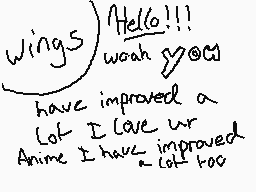 wings
Hello!!!
woah you
have improved a
lot I love ur
Anime I have improved
a lot too